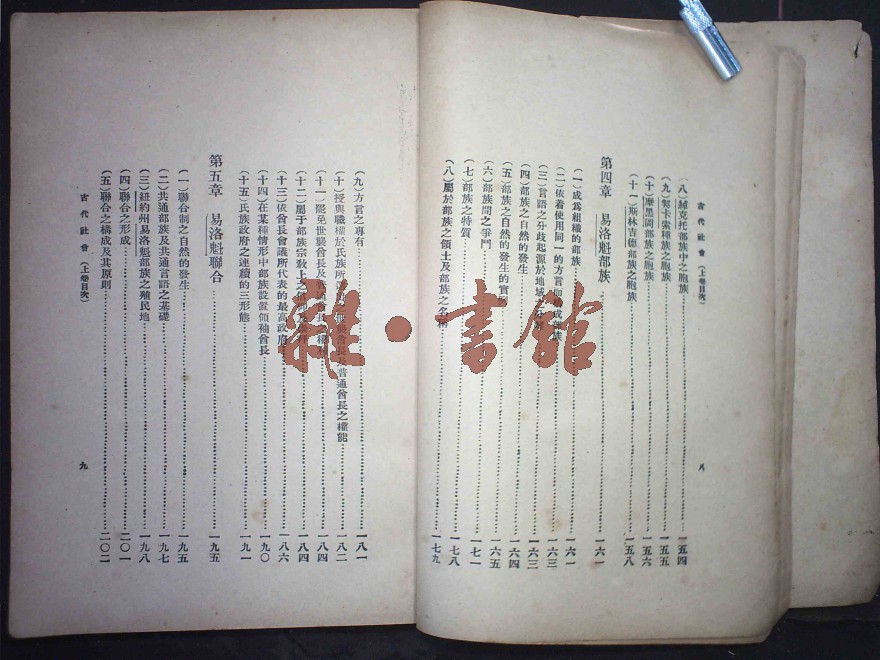 古代社會（上卷目次）
八
（八）綽克托部族中之胞族……一五四
（九）郭卡索種族之胞族……一五五
（十）摩黑岡部族之胞族……一五六
（十一）斯林吉德部族之胞族……一五八
第四章　易洛魁部族……一六一
（一）成爲組織的部族……一六一
（二）依着使用同一的方言而構成部族……一六三
（三）言語之分歧起源於地域……一六三
（四）部族之自然的發生……一六四
（五）部族之自然的發生的實例……一六五
（六）部族間之爭鬥……一七一
（七）部族之特質……一七八
（八）屬於部族之領土及部族之名稱……一七九
（九）方言之專有……一八一
（十）授與職權於氏族所　　世襲酋長及普通酋長之權能……一八二
（十一）罷免世襲酋長及　　酋長　權……一八四
（十二）屬于部族宗敎上之……一八四
（十三）依酋長會議所代表的最高政府……一八六
（十四）在某種情形中部族設置領袖酋長……一九〇
（十五）氏族政府之連續的三形態……一九一
第五章　易洛魁聯合……一九五
（一）聯合制之自然的發生……一九五
（二）共通部族及共通言語之基礎……一九七
（三）紐約州易洛魁部族之殖民地……一九八
（四）聯合之形成……二〇一
（五）聯合之構成及其原則……二〇二
古代社會（上卷目次）
九
雜·書館